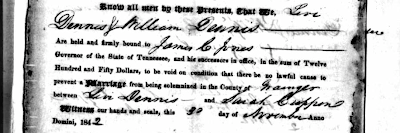 Know all men by these Presents, That We, Levi
Dennis & William Dennis
Are held and firmly bound to James C Jones
Governor of the State of Tennessee, and his successors in office, in the sum of Twelve
Hundred and Fifty Dollars, to be void on condition that there be no lawful cause to
prevent a Marriage from being solemnized in the County of Grainger
between Levi Dennis and Sarah
Witness our hands and seals, this 30 day of November Anno
Domini, 1842